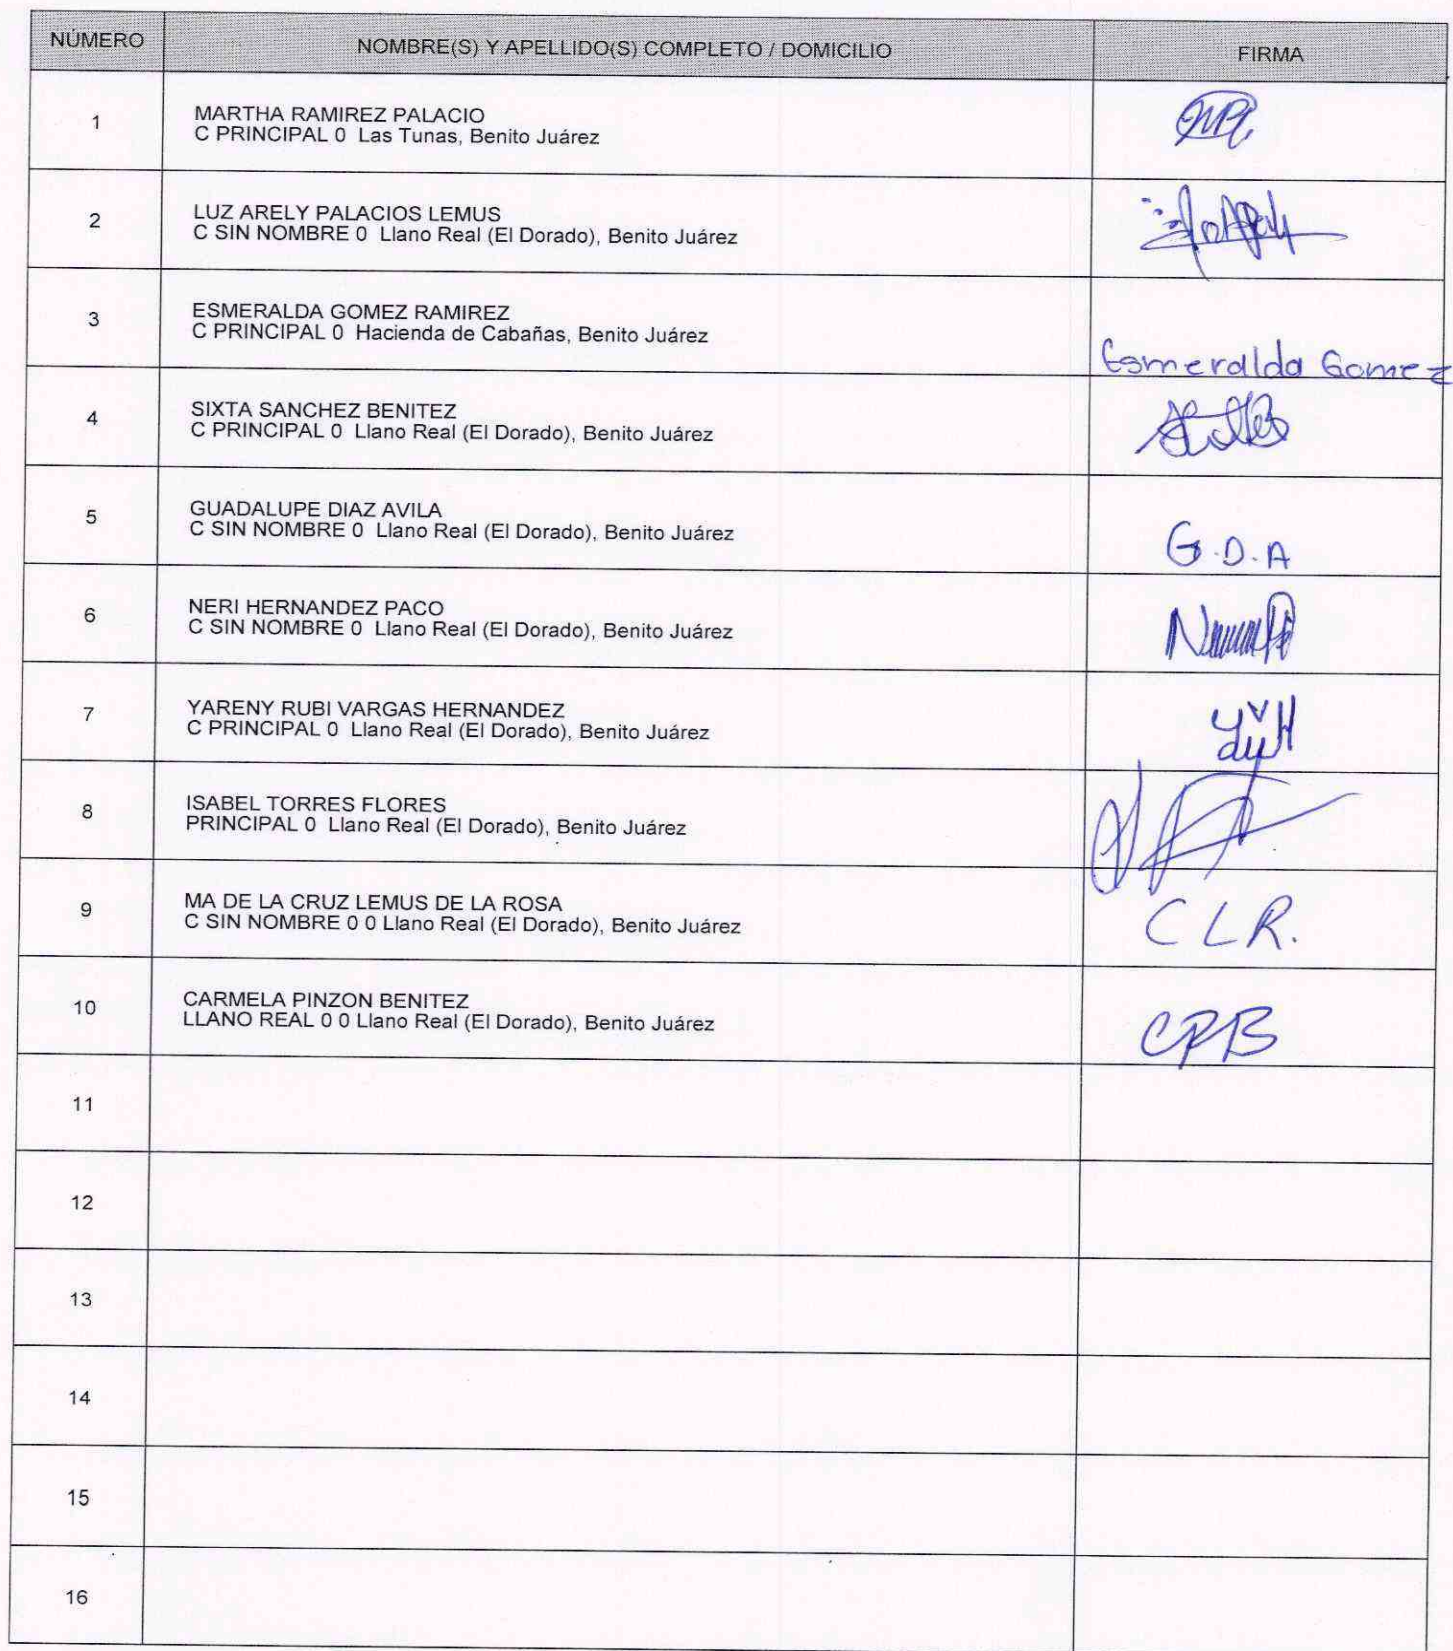 NÚMERO NOMBRE(S) Y APELLIDO(S) COMPLETO / DOMICILIO FIRMA
1 MARTHA RAMIREZ PALACIO
C PRINCIPAL 0 Las Tunas, Benito Juárez
2 LUZ ARELY PALACIOS LEMUS
C SIN NOMBRE 0 Llano Real (El Dorado), Benito Juárez
3 ESMERALDA GOMEZ RAMIREZ
C PRINCIPAL 0 Hacienda de Cabañas, Benito Juárez
Esmeralda Gomez
4 SIXTA SANCHEZ BENITEZ
C PRINCIPAL 0 Llano Real (El Dorado), Benito Juárez
5 GUADALUPE DIAZ AVILA
C SIN NOMBRE 0 Llano Real (El Dorado), Benito Juárez
G.D.A
6 NERI HERNANDEZ PACO
C SIN NOMBRE 0 Llano Real (El Dorado), Benito Juárez
7 YARENY RUBI VARGAS HERNANDEZ
C PRINCIPAL 0 Llano Real (El Dorado), Benito Juárez
8 ISABEL TORRES FLORES
PRINCIPAL 0 Llano Real (El Dorado), Benito Juárez
9 MA DE LA CRUZ LEMUS DE LA ROSA
C SIN NOMBRE 0 0 Llano Real (El Dorado), Benito Juárez
C L R.
10 CARMELA PINZON BENITEZ
LLANO REAL 0 0 Llano Real (El Dorado), Benito Juárez
CPB
11
12
13
14
15
16